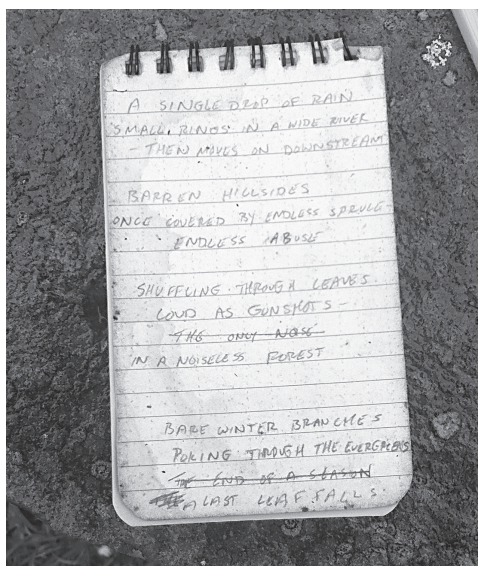 A SINGLE DROP OF RAIN
SMALL RINGS IN A WIDE RIVER
- THEN MOVES ON DOWNSTREAM
BARREN HILLSIDES
ONCE COVERED BY ENDLESS SPRUCE
ENDLESS ABUSE
SHUFFLING THROUGH LEAVES
LOUD AS GUNSHOTS -
THE ONLY NOISE
IN A NOISELESS FOREST
BARE WINTER BRANCHES
POKING THROUGH THE EVERGREENS
THE END OF A SEASON
A LAST LEAF FALLS